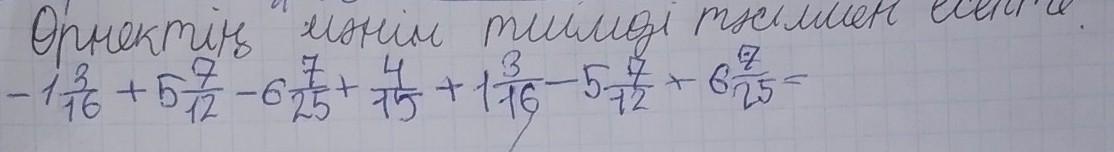 Өрнектің мәнін тиімді тәсілмен есепте.
-1 3/16 + 5 7/12 - 6 7/25 + 4/15 + 1 3/16 - 5 7/12 + 6 7/25 =